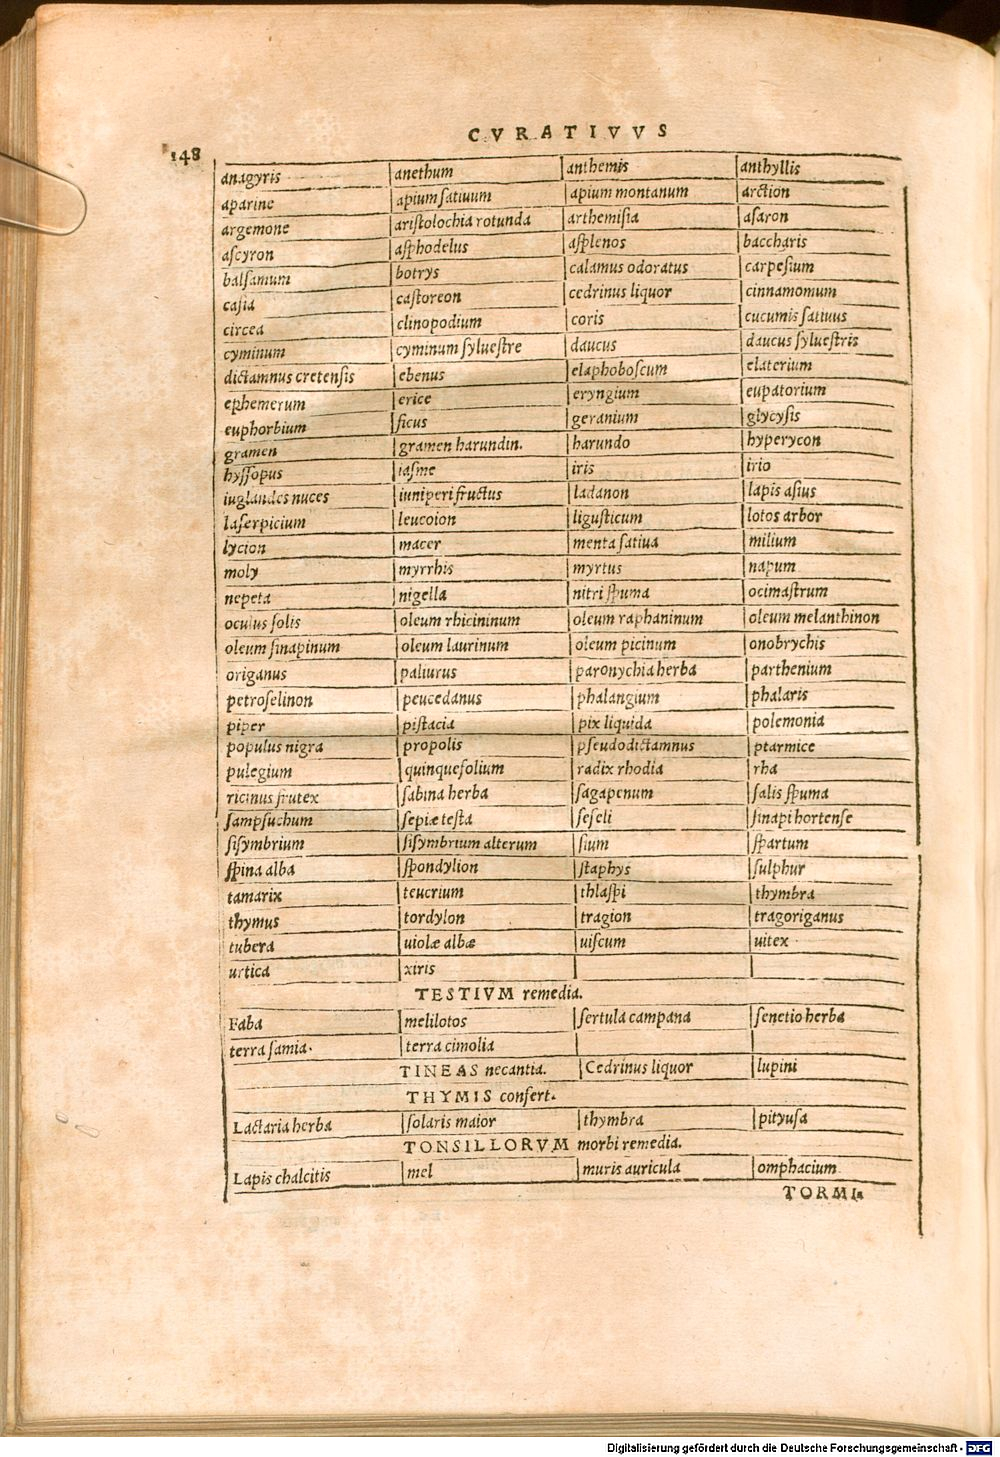 CVRATIVVS
148
anagyris anethum anthemis anthyllis
aparine apium satiuum apium montanum arction
argemone aristolochia rotunda arthemisia asaron
ascyron asphodelus asplenos baccharis
balsamum botrys calamus odoratus carpesium
casia castoreon cedrinus liquor cinnamomum
circea clinopodium coris cucumis satiuus
cyminum cyminum syluestre daucus daucus syluestris
dictamnus cretensis ebenus elaphoboscum elaterium
ephemerum erice eryngium eupatorium
euphorbium ficus geranium glycysis
gramen gramen harundin. harundo hyperycon
hyssopus iasme iris irio
iuglandes nuces iuniperi fructus ladanon lapis asius
laserpicium leucoion ligusticum lotos arbor
lycion macer menta satiua milium
moly myrrhis myrtus napum
nepeta nigella nitri spuma ocimastrum
oculus solis oleum rhicininum oleum raphaninum oleum melanthinon
oleum sinapinum oleum laurinum oleum picinum onobrychis
origanus paliurus paronychia herba parthenium
petroselinon peucedanus phalangium phalaris
piper pistacia pix liquida polemonia
populus nigra propolis pseudodictamnus ptarmice
pulegium quinquefolium radix rhodia rha
ricinus frutex sabina herba sagapenum salis spuma
sampsuchum sepiæ testa seseli sinapi hortense
sisymbrium sisymbrium alterum sium spartum
spina alba spondylion staphys sulphur
tamarix teucrium thlaspi thymbra
thymus tordylon tragion tragoriganus
tubera uiolæ albæ uiscum uitex
urtica xiris
TESTIVM remedia.
Faba melilotos sertula campana senetio herba
terra samia. terra cimolia
TINEAS necantia. Cedrinus liquor lupini
THYMIS confert.
Lactaria herba solaris maior thymbra pityusa
TONSILLORVM morbi remedia.
Lapis chalcitis mel muris auricula omphacium
TORMI-
Digitalisierung gefördert durch die Deutsche Forschungsgemeinschaft - DFG